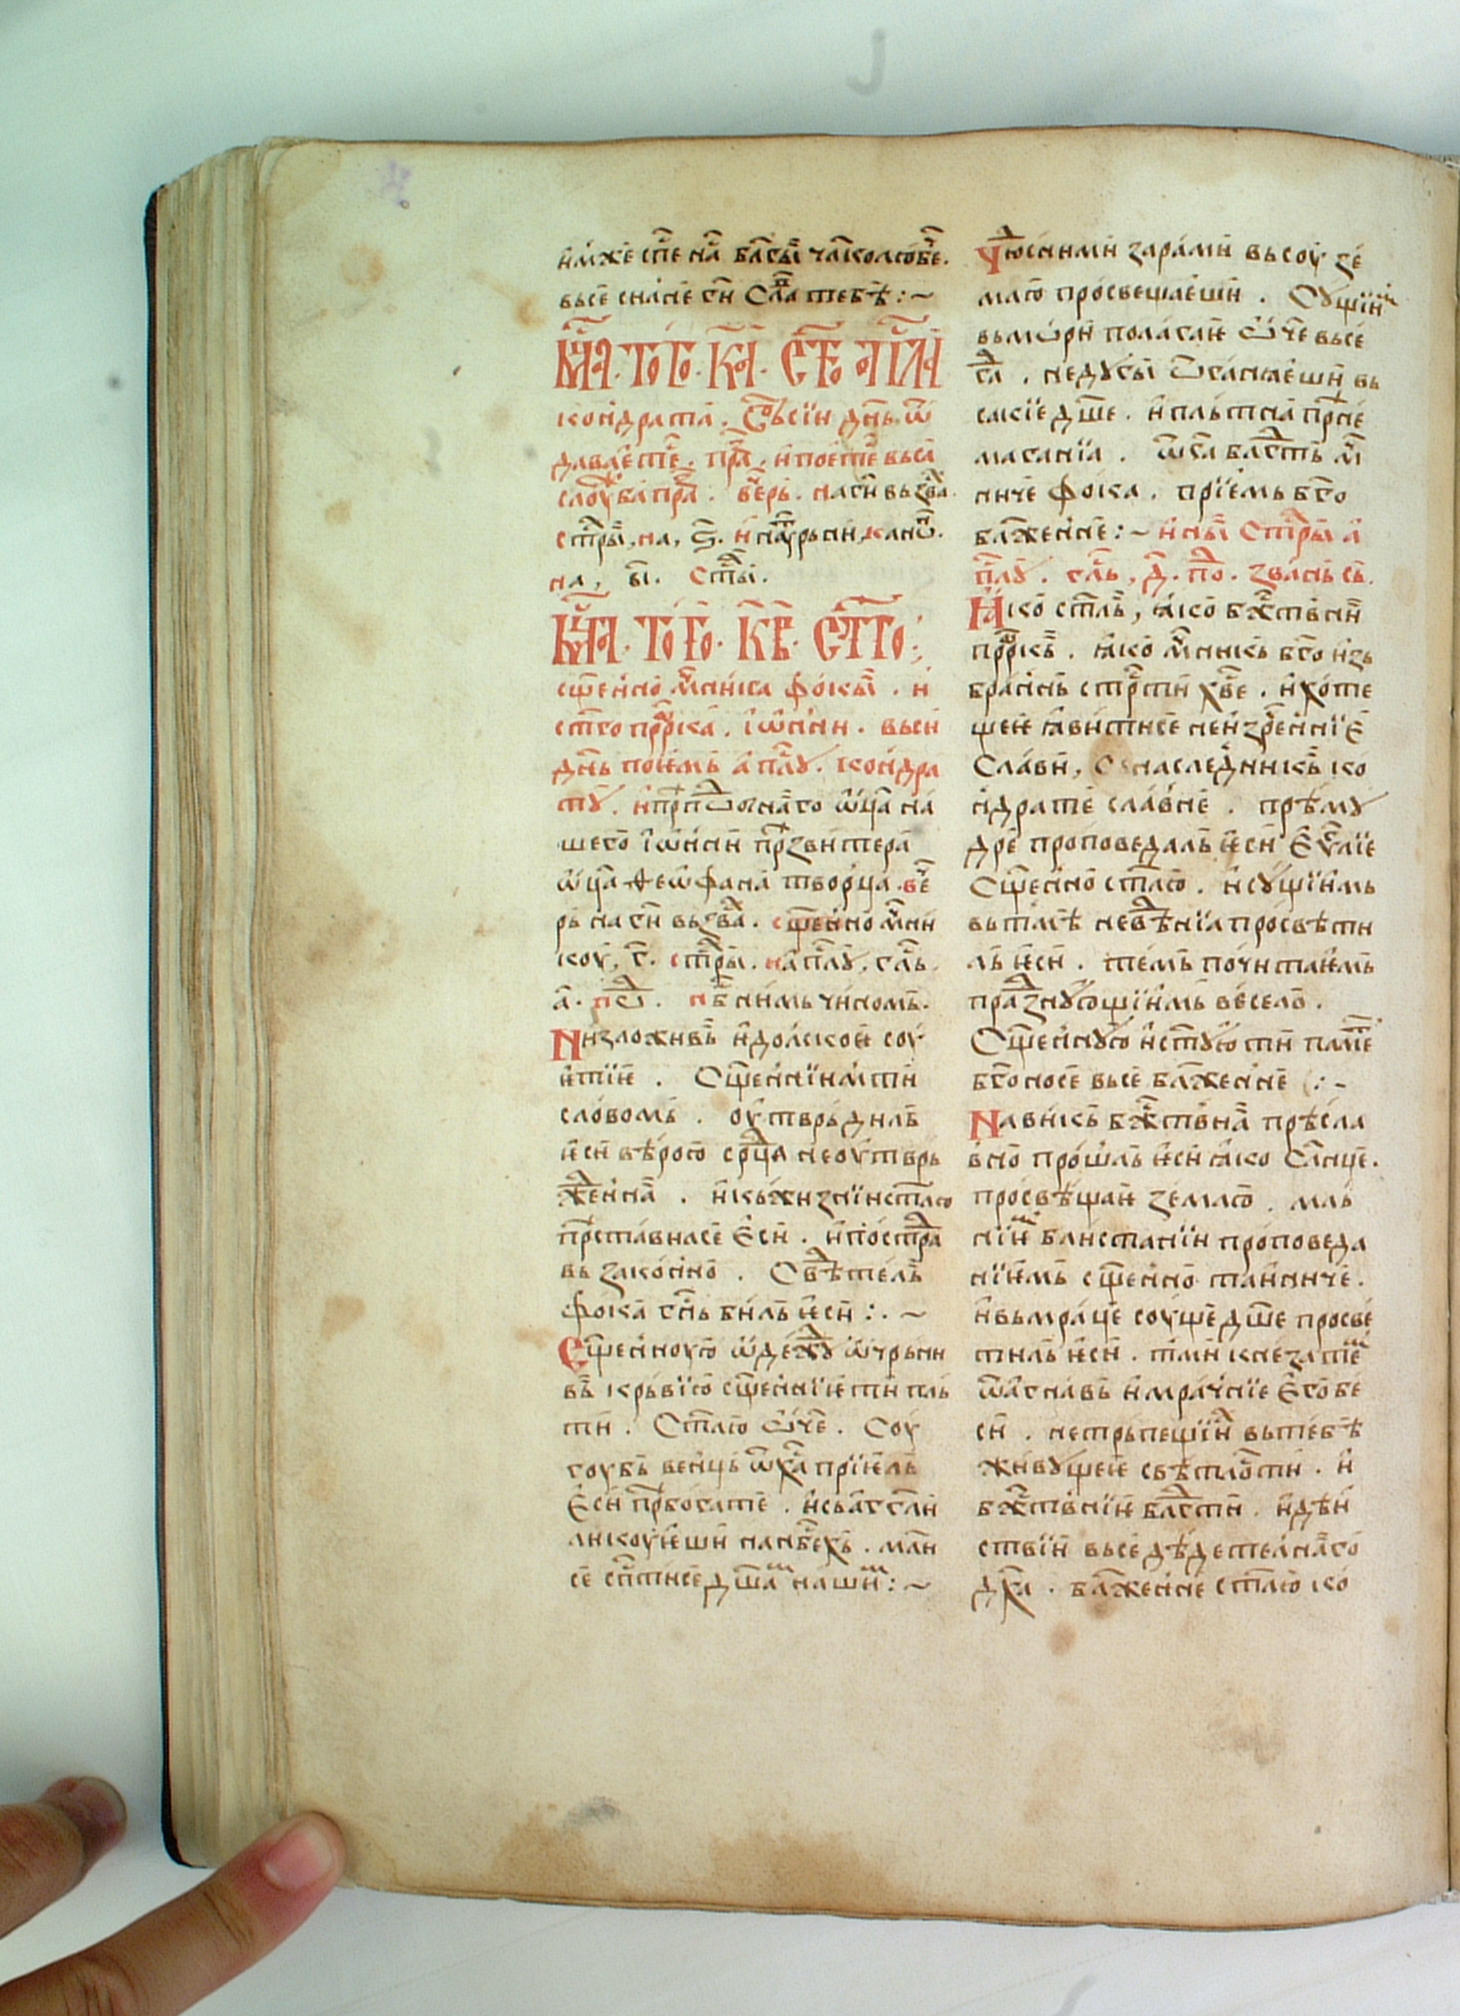 и҆мже сп҃се на̑ бл҃гы̑ чл҃коло́бче.
вьсе силне си̑ Сла̑ тебѣ :~
Мц҃а · того́ · к҃а · ст҃го ап҃ла
ко́ндрата̀. Въсїи дн҃ь ѿ
дава́ет се. пра̑. и҆ пое́т се вьса̀
слоу́жба пра̑. ве́чрь. на г҃и възва̑.
стр҃ы, на, ѕ҃. и҆ наутрьни, кано̑.
на, в҃і. ст҃ы.
Мц҃а · того · к҃в · ст҃го :
сщ҃е́нно мч҃нка фо́кы̑. и҆
ст҃го пррка̀. і҆ѡ́ни. вьси
дн҃ь пое́мь а҆п҃лу. ко́ндра
ту. и҆ прп҃обнаго ѿц҃а на
шего̀ і҆ѡ́нїи прзвитера̀
ѿц҃а ѳеѡфана̀ твор́ца. ве́ч
рь на г҃и възва̑. сщ҃е́нно мч҃ни
коу, г҃. стр҃ы. и҆ а҆п҃лу, гл҃ь.
а҃. по̑. нб҃снимь чи́номь.
Низложивь и҆дольское соу
е́тїе. Сщ҃е́ннїими ти
сло́вомь. оу҆тврьдиль
е҆си вѣ́рою ср҃ца неоутврь
же́нна̑. и҆ кь жизни и҆ст҃лю
прѣста́вил се е҆си. и҆ по́стра̑
вь зако́нно. Свѣ́тель
Фо́ка сн҃ь биль е҆си :. ~
Сщ҃е́нноую ѡ҆де́жду ѡ҆чрьни
вь крь́вїю сщ҃е́ннїе ти пль
ти. Ст҃лю ѿч҃е. Соу
гоубь ве́нць ѿ х҃а прїе́ль
е҆си прѣбога́те. и҆ сь а҆гг҃ли
ликоуе́ши на нб҃сехь. моли
се сп҃сти се дш҃амь на́шимь :~
Чю́дними зара́ми вьсоу зе
млю просвещае́ши. Сущїимь
вь мо́ри пола́гаи ѿч҃е вьсе
гда̀. неду́гы ѿгание́ши вь
са́кїе дш҃е. и҆ пльтна̀ прие
ма́ганїа. ѿ б҃а бл҃гдть мч҃
ниче фо́ка. прїе́мь б҃го
бл҃же́нне :~ и҆ны̑ стр҃ы а҆
п҃лу. гл҃ь, д҃. по̑. зва́нь св.
Ꙗко ст҃ль, ꙗко бж҃ств́ни
прр҃кь. ꙗко мч҃никь б҃го и҆зь
бра́нь стр҃сти хв҃е. и҆ хоте
щеи ꙗвити се неизре́ннїе
Сла́ви, наследникь ко
ндрате сла́вне. прѣму
дре проповедаль е҆си е҆ѵ҃лїе
Сщ҃е́нно ст҃лю. и҆ су́щїимь
вь тмѣ неве́дѣнїа просвѣти
ль е҆си. темь почитае́мь
празную́щїимь ве́село.
Сщ҃е́нную и҆ ст҃ую ти па́меть
б҃гоно́се вьсе бл҃же́нне :~
Навикь бж҃ств́на̑ прѣсла
вно про́шль е҆си ꙗко сл҃нце.
просвѣщае землю. мль
нїи̑ блистанїи пропове́да
нїе́мь сщ҃е́нно таи́нниче.
и҆ вь мра́це соу́ще дш҃е просве
тиль е҆си. тми кнеза те
ѿа́гнавь и҆ мра́чнїе ею бе
си. нетрьпещїи вь тебѣ
живу́щее свѣтло́сти. и҆
бж҃ств́нїе бл҃гдти. и҆ дѣи
ствїи вьседѣ́детелнаго
дх҃а. бл҃же́нне ст҃лю ко